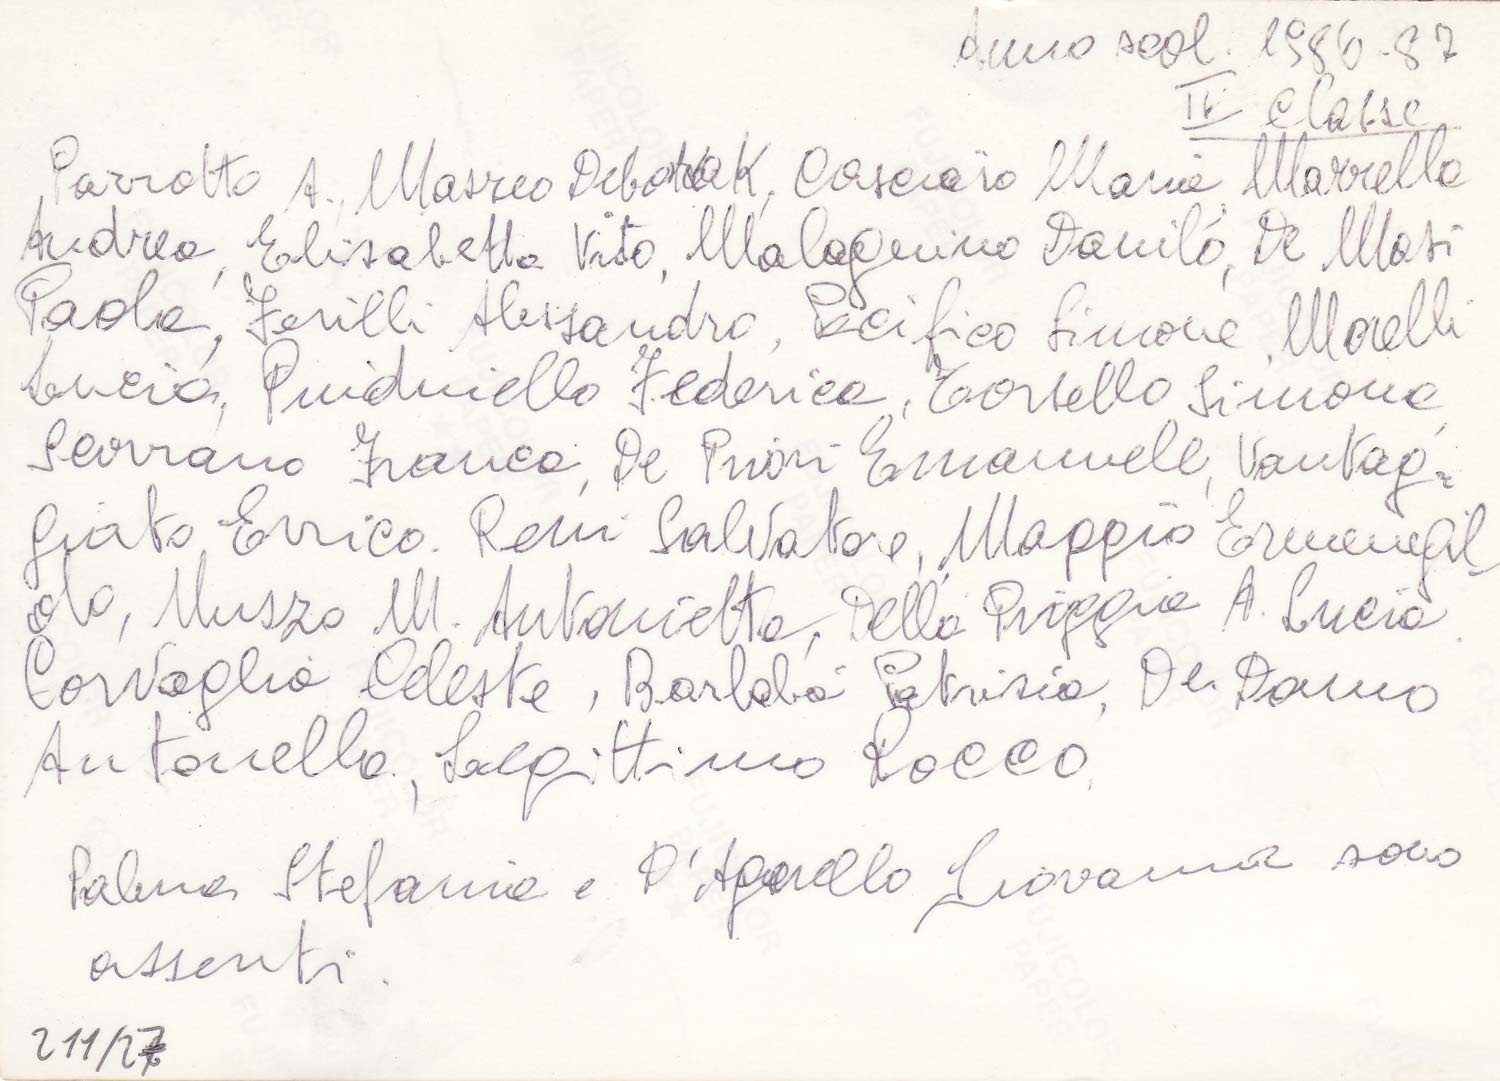 Anno scol. 1986-87
IV classe
Parrotto A., Mazzeo Deborak, Casciaro Maria, Marrella
Andrea, Elisabetta Vito, Malagnino Danilo, De Masi
Paola, Ferilli Alessandra, Pacifico Simone, Morelli
Lucia, Federica, Torsello Simona,
Scorrano Franca, De Priori Emanuele, Vantag-
giato Errico. Remi Salvatore, Maggio Ermenegil
da, Muszo M. Antonietta, Della Priggia A. Lucia
Corvaglia Celeste, Barlabà Patrizia, De Damo
Antonella, Rocco.
Palma Stefania e D'Aganello Giovanna sono
assenti.
211/27
FUJICOLOR
PAPER